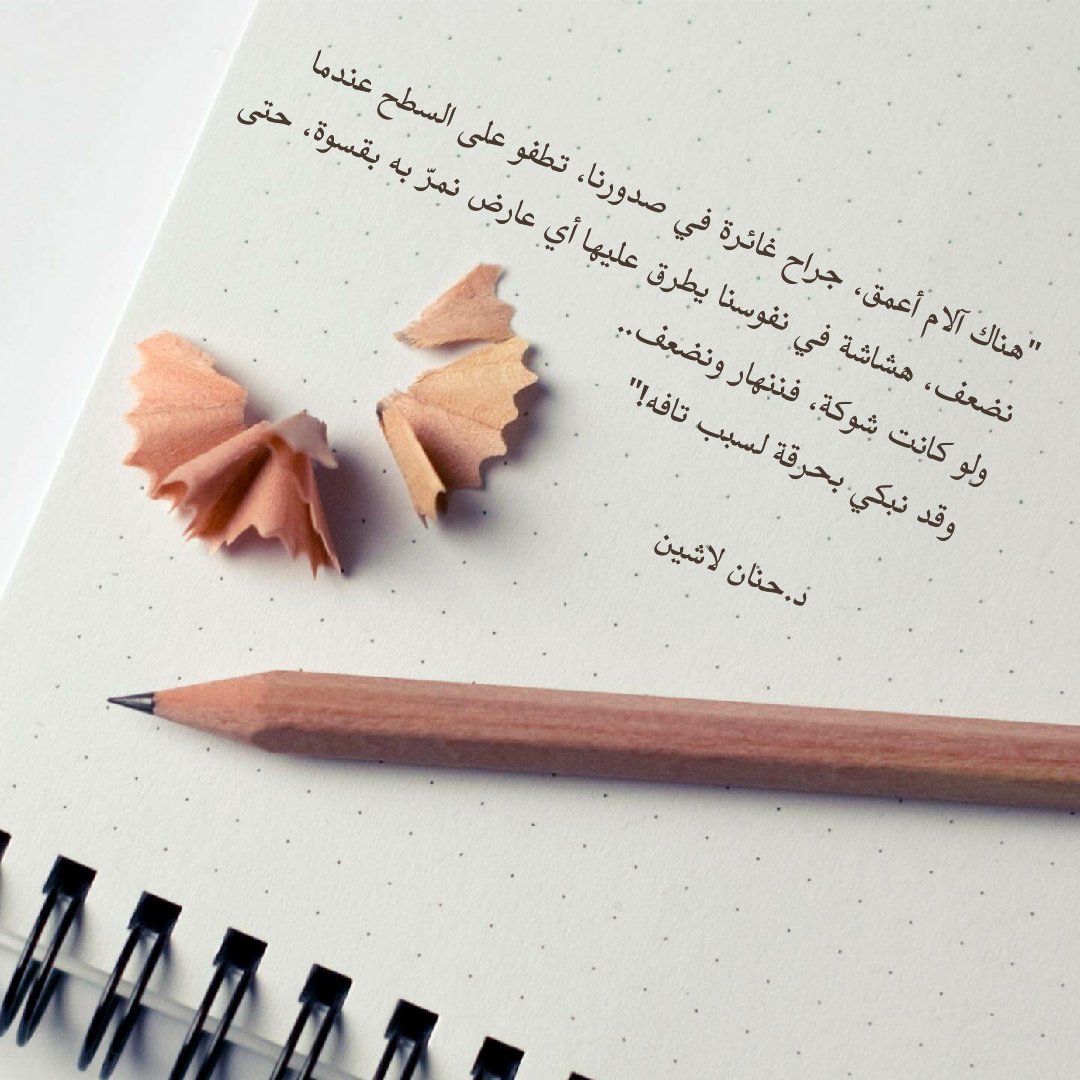 "هناك آلام أعمق، جراح غائرة في صدورنا، تطفو على السطح عندما
نضعف، هشاشة في نفوسنا يطرق عليها أي عارض نمرّ به بقسوة، حتى
ولو كانت شوكة، فننهار ونضعف..
وقد نبكي بحرقة لسبب تافه!"
د.حنان لاشين